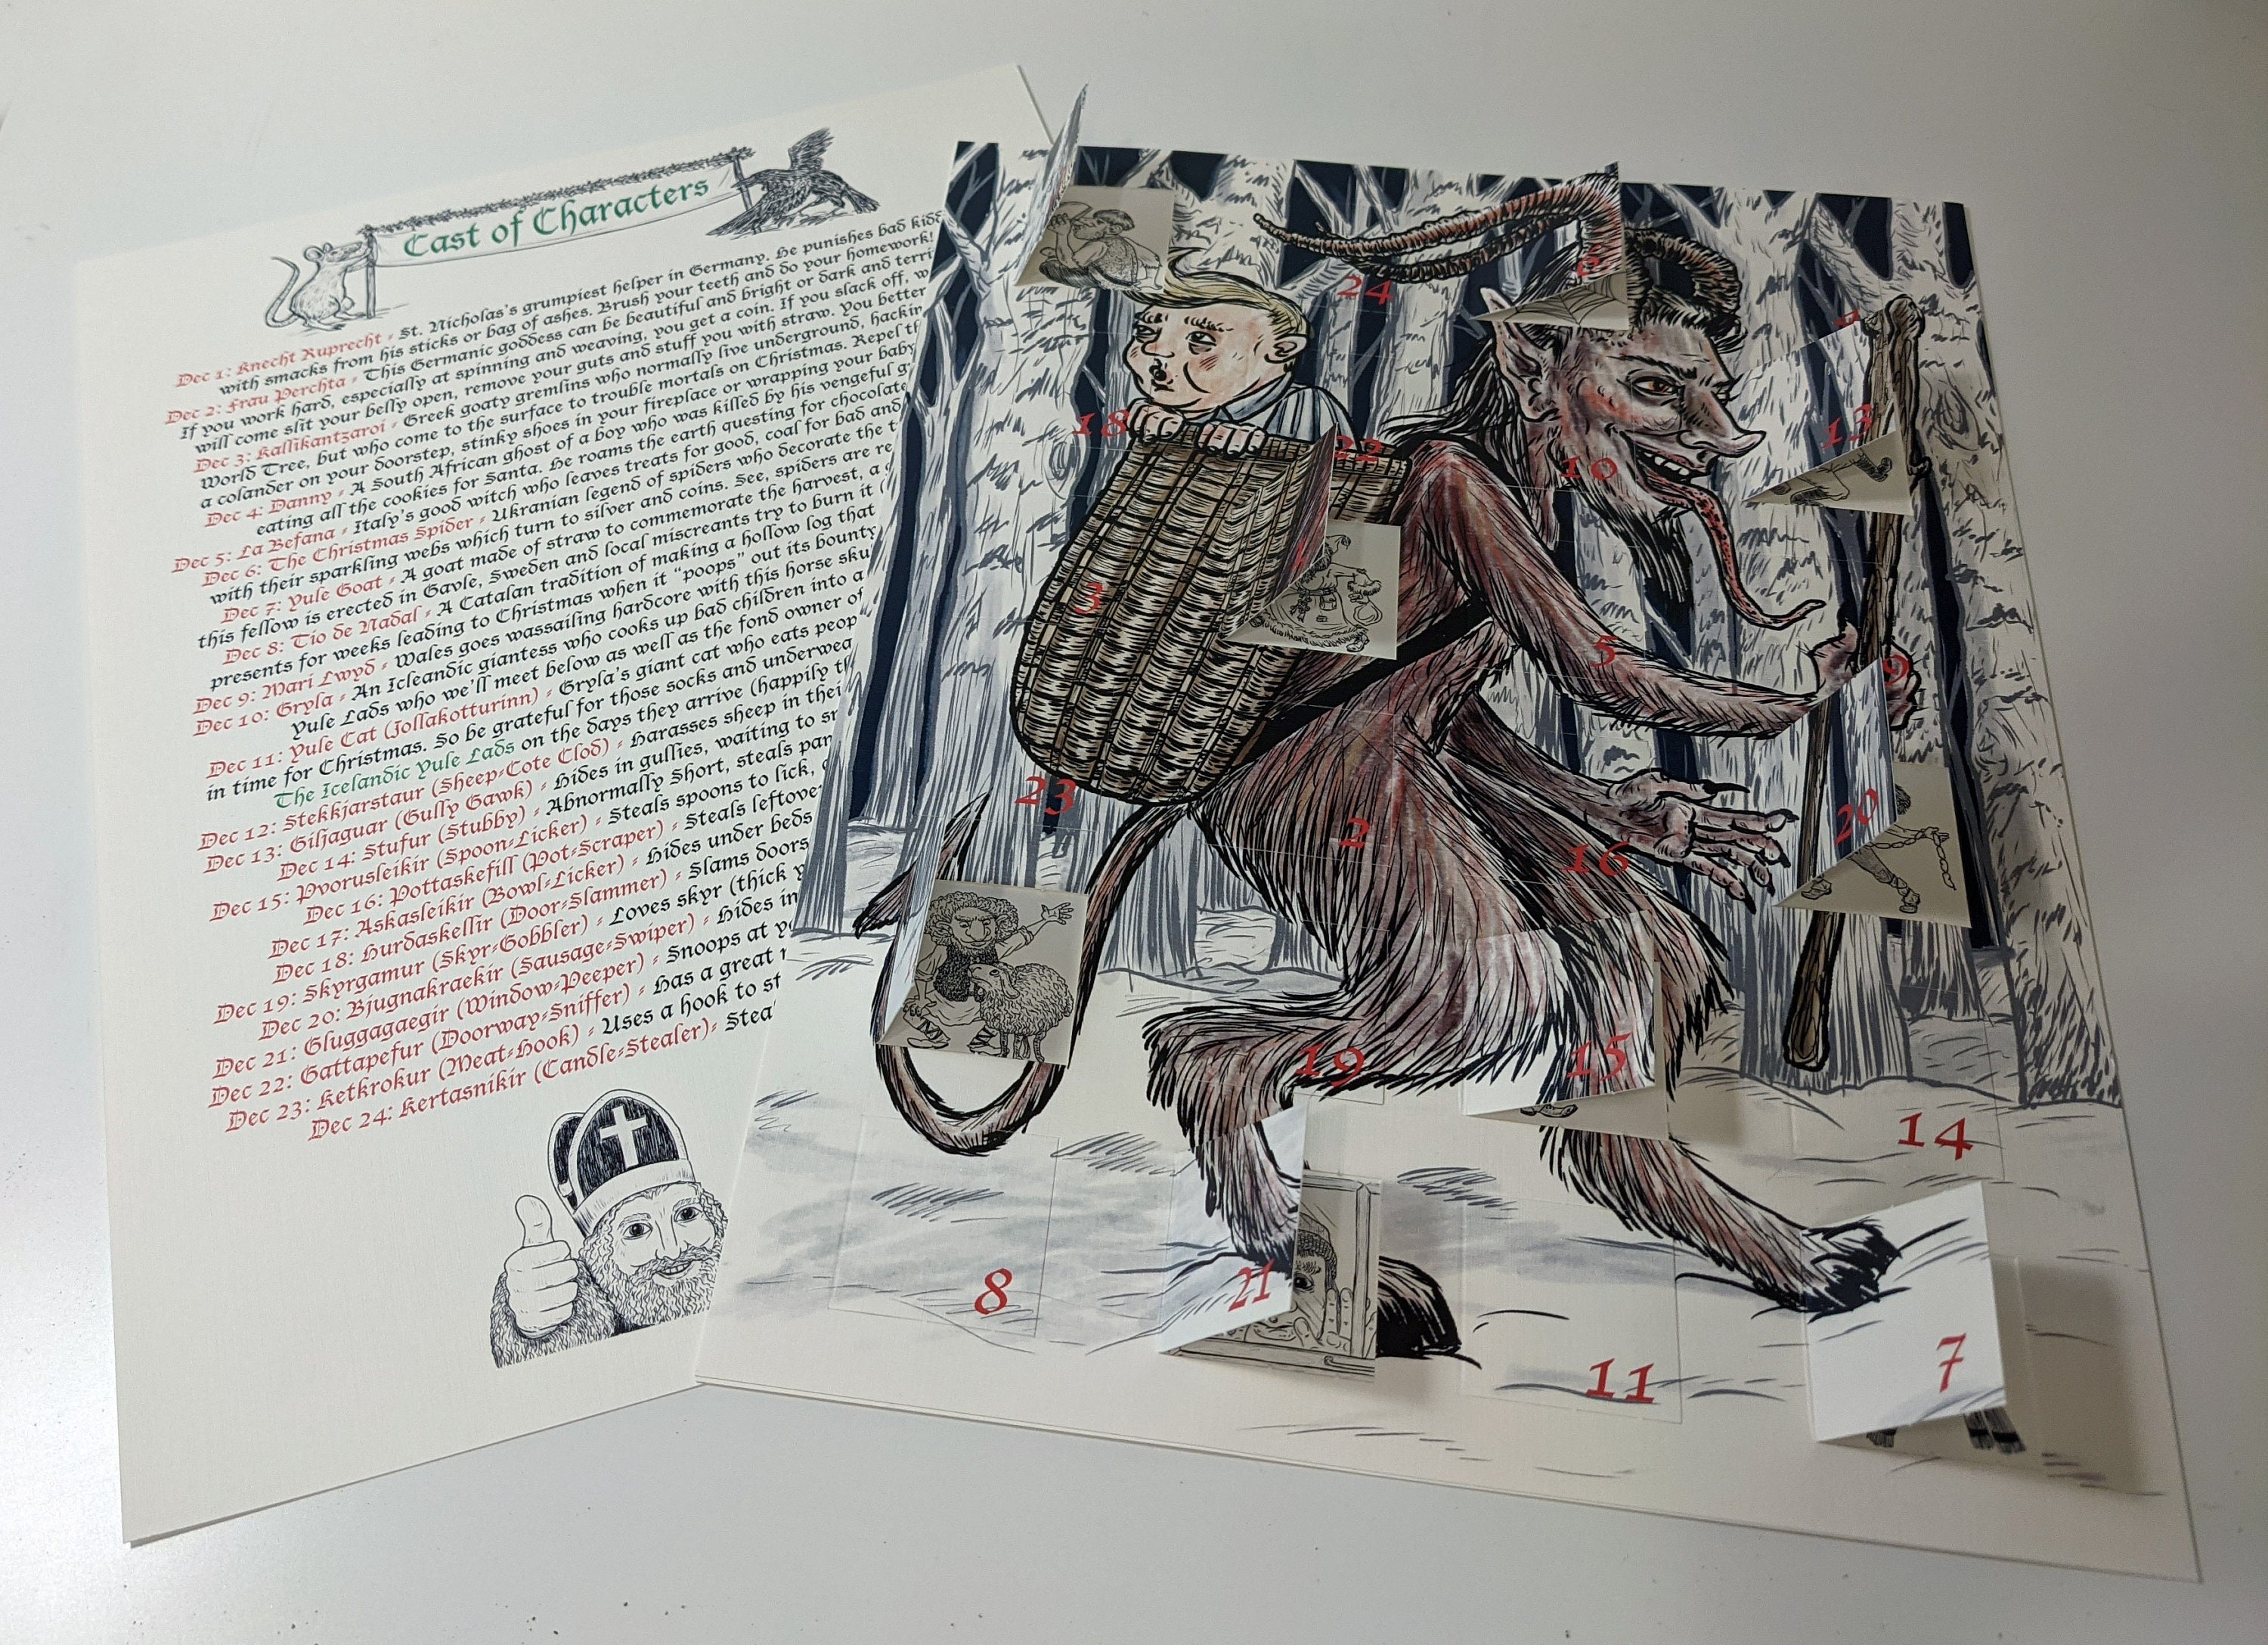 Cast of Characters
Dec 1: Knecht Ruprecht - St. Nicholas's grumpiest helper in Germany. He punishes bad kids
with smacks from his sticks or bag of ashes. Brush your teeth and do your homework!
Dec 2: Frau Perchta - This Germanic goddess can be beautiful and bright or dark and terri
If you work hard, especially at spinning and weaving, you get a coin. If you slack off, w
will come slit your belly open, remove your guts and stuff you with straw. You better
Dec 3: Kallikantzaroi - Greek goaty gremlins who normally live underground, hackin
World Tree, but who come to the surface to trouble mortals on Christmas. Repel th
a colander on your doorstep, stinky shoes in your fireplace or wrapping your baby
Dec 4: Danny - A South African ghost of a boy who was killed by his vengeful g
eating all the cookies for Santa. He roams the earth questing for chocolate
Dec 5: La Befana - Italy's good witch who leaves treats for good, coal for bad and
Dec 6: The Christmas Spider - Ukranian legend of spiders who decorate the t
with their sparkling webs which turn to silver and coins. See, spiders are re
Dec 7: Yule Goat - A goat made of straw to commemorate the harvest, a
this fellow is erected in Gavle, Sweden and local miscreants try to burn it
Dec 8: Tio de Nadal - A Catalan tradition of making a hollow log that
presents for weeks leading to Christmas when it "poops" out its bounty
Dec 9: Mari Lwyd - Wales goes wassailing hardcore with this horse sku
Dec 10: Gryla - An Icleandic giantess who cooks up bad children into a
Yule Lads who we'll meet below as well as the fond owner of
Dec 11: Yule Cat (Jollakotturinn) - Gryla's giant cat who eats peop
in time for Christmas. So be grateful for those socks and underwea
The Icelandic Yule Lads on the days they arrive (happily t
Dec 12: Stekkjarstaur (Sheep-Cote Clod) - Harasses sheep in thei
Dec 13: Giljaguar (Gully Gawk) - Hides in gullies, waiting to sn
Dec 14: Stufur (Stubby) - Abnormally Short, steals pan
Dec 15: Pvorusleikir (Spoon-Licker) - Steals spoons to lick,
Dec 16: Pottaskefill (Pot-Scraper) - Steals leftover
Dec 17: Askasleikir (Bowl-Licker) - Hides under beds
Dec 18: Hurdaskellir (Door-Slammer) - Slams doors
Dec 19: Skyrgamur (Skyr-Gobbler) - Loves skyr (thick y
Dec 20: Bjugnakraekir (Sausage-Swiper) - Hides in
Dec 21: Gluggagaegir (Window-Peeper) - Snoops at y
Dec 22: Gattapefur (Doorway-Sniffer) - Has a great
Dec 23: Ketkrokur (Meat-Hook) - Uses a hook to st
Dec 24: Kertasnikir (Candle-Stealer)- Stea
24
6
18
22
10
13
3
5
9
23
2
16
20
19
15
14
8
21
11
7